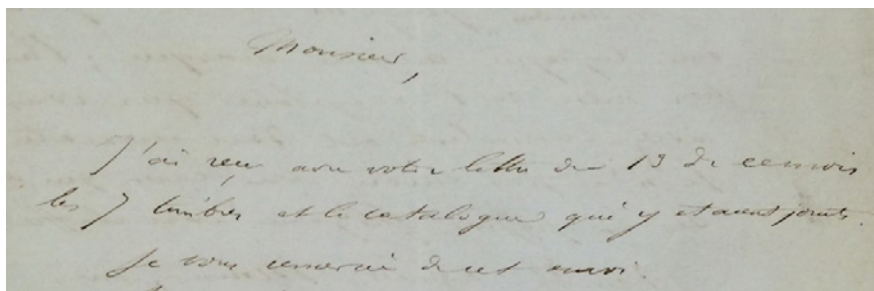 Monsieur,
J'ai reçu avec votre lettre du 13 de ce mois
les 7 timbres et le catalogue qui y etaient joints.
Je vous remercie de cet envoi.